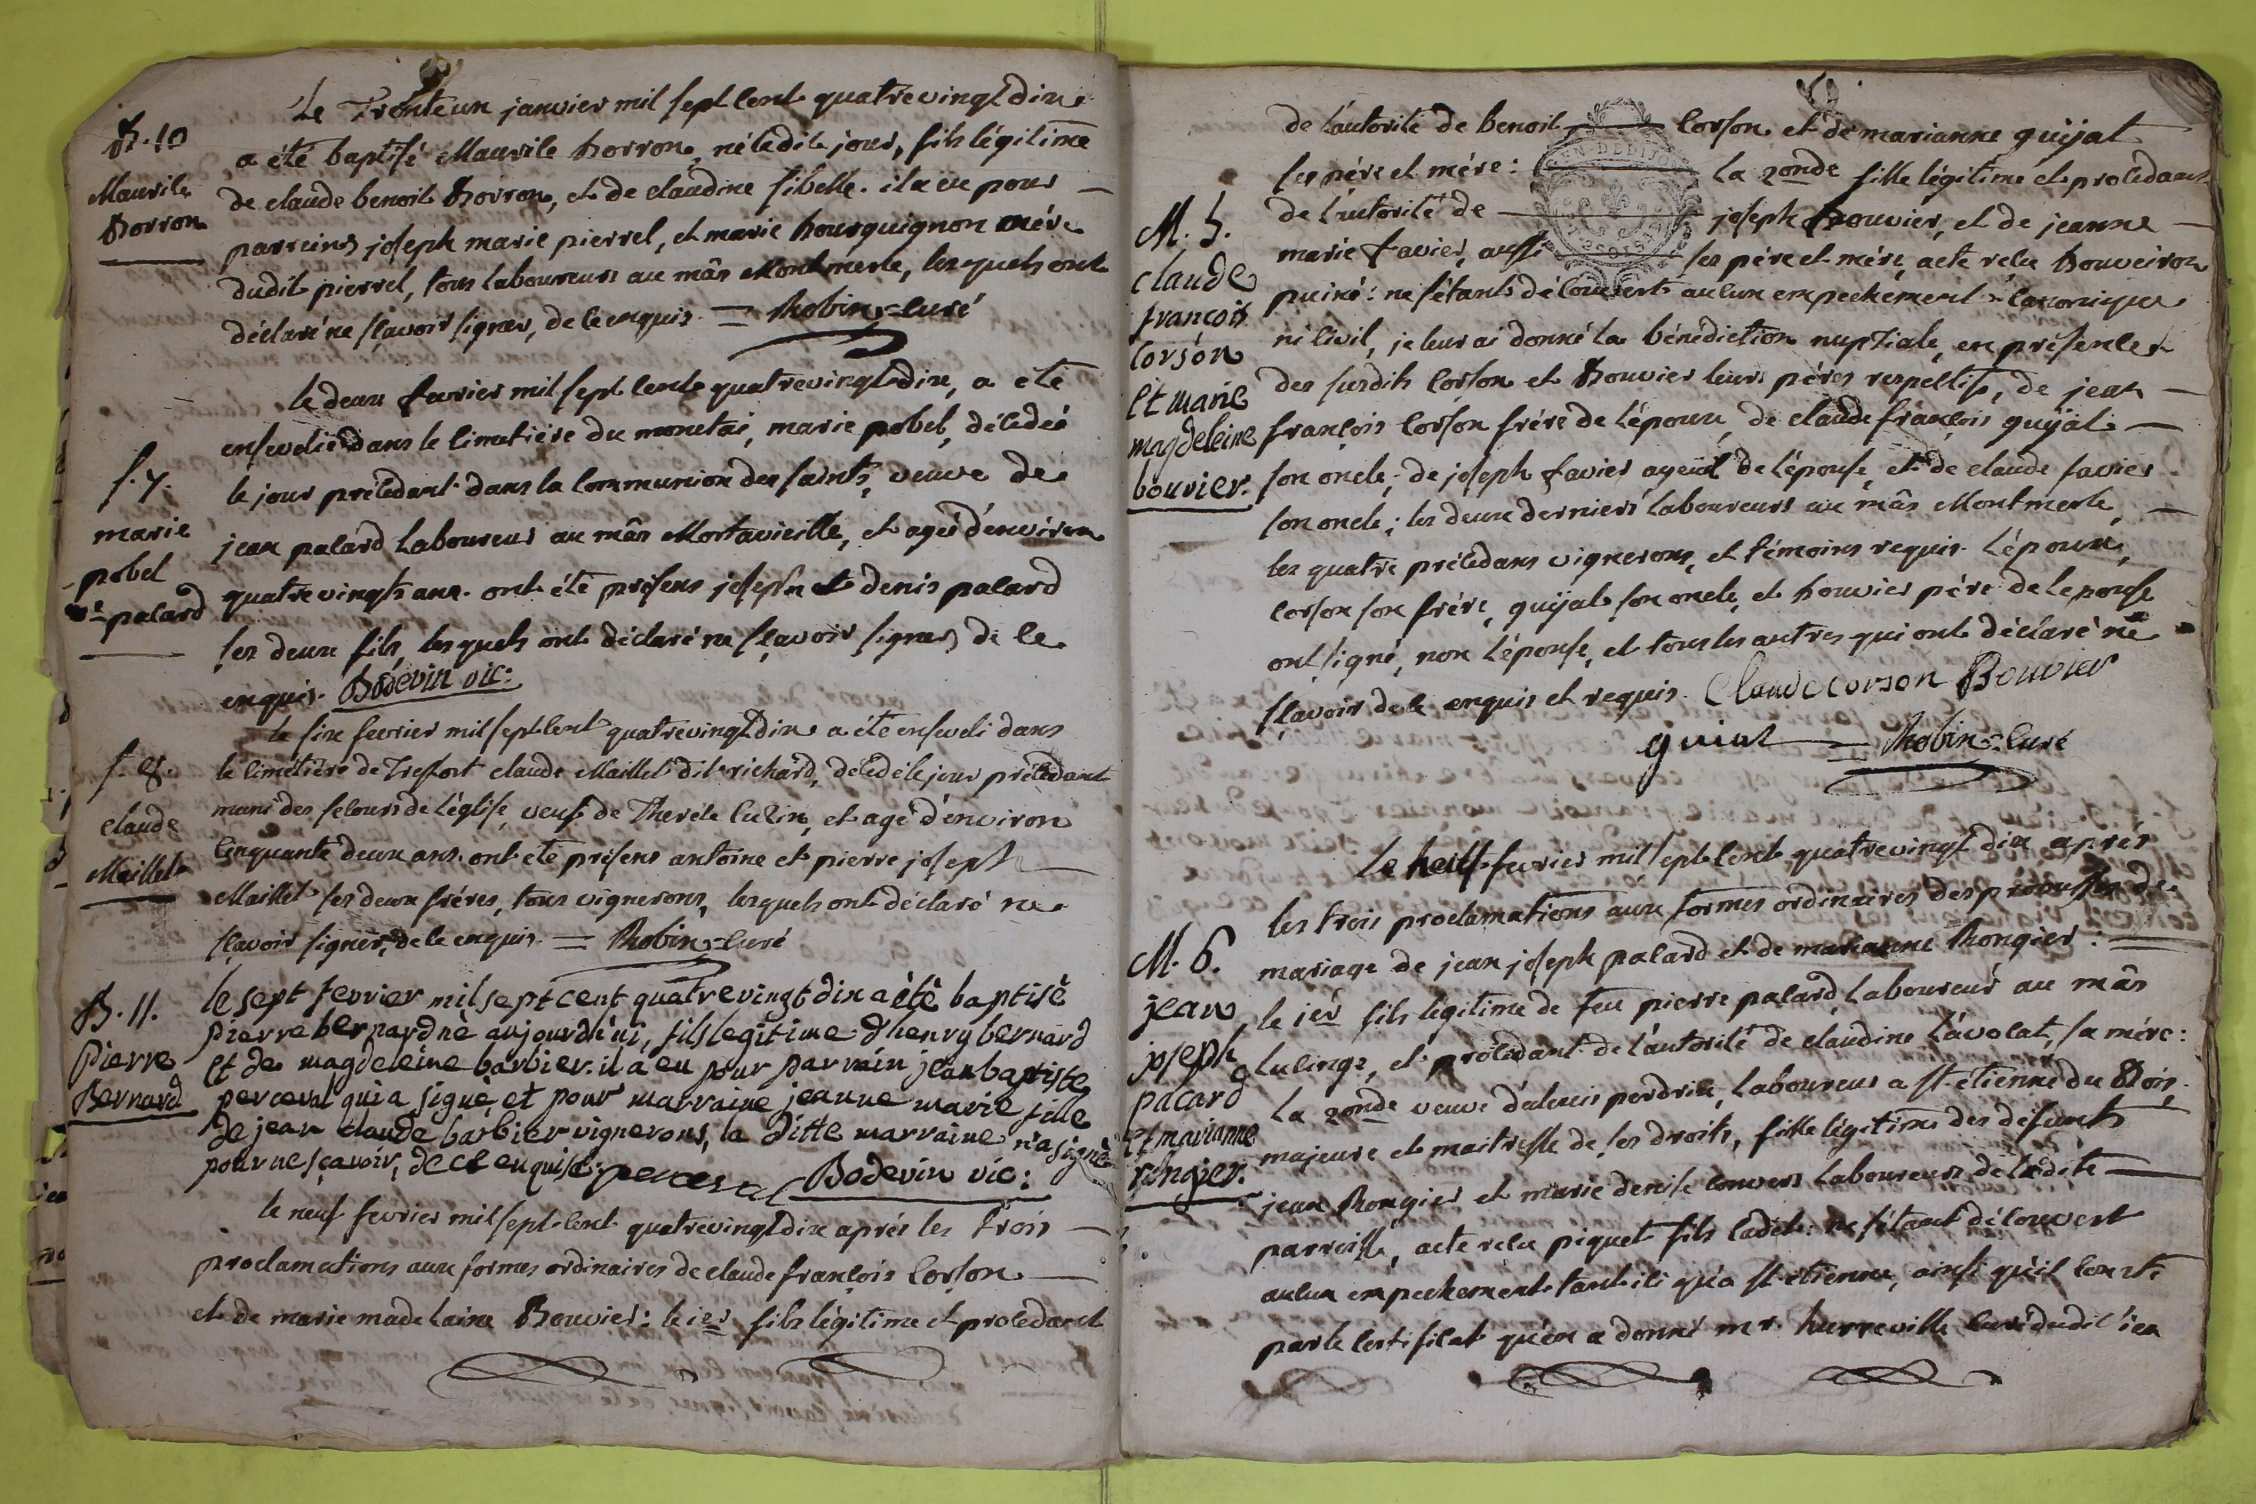 B. 10
Maurile
Borron
Le Trente un janvier mil sept cent quatrevingt dix
a été baptisé Maurile borron, né le dit jour, fils légitime
de claude benoit Borron, et de claudine sibelle. il a eu pour
parreins joseph marie pierrel, et marie bourguignon mére
dudit pierrel, tous laboureurs au mâs Montmerle, lesquels ont
déclaré ne sçavoir signer, de ce enquis = Robin curé
s. 7.
marie
pobel
ve palard
le deux fevrier mil sept cent quatrevingt dix, a été
ensevelie dans le cimetiére du monetai, marie pobel, décédée
le jour précédant dans la communion des saints, veuve de
jean palard laboureur au mâs Mortavieille, et agée d'environ
quatre vingts ans. ont été présens joseph et denis palard
ses deux fils, lesquels ont déclaré ne sçavoir signer, de ce
enquis. Bodevin vic:
s. 8.
claude
Maillet
le six fevrier mil sept cent quatrevingt dix a été enseveli dans
le cimétiére de Treffort claude Maillet dit richard, décédé le jour précédant
muni des secours de l'église, veuf de Therese Cuzin, et agé d'environ
cinquante deux ans. ont été présens antoine et pierre joseph
Maillet ses deux fréres, tous vignerons, lesquels ont déclaré ne
sçavoir signer, de ce enquis = Robin curé
B. 11.
Pierre
Bernard
le sept fevrier mil sept cent quatre vingt dix a été baptisé
pierre bernard né aujourd'hui, fils legitime d'henry bernard
et de magdeleine barbier. il a eu pour parrain jean baptiste
perceval qui a signé, et pour marraine jeanne marie fille
de jean claude barbier vignerons, la ditte marraine n'a signé
pour ne sçavoir, de ce enquise. perceval Bodevin vic:
le neuf fevrier mil sept cent quatrevingt dix aprés les trois
proclamations aux formes ordinaires de claude françois Corson
et de marie madelaine Bouvier: le ier fils légitime et procedant
M. 5.
claude
francois
corson
et marie
magdeleine
bouvier.
de l'autorité de benoit Corson et de marianne quijat
ses pére et mére: la 2onde fille légitime et procedant
de l'autorité de joseph Bouvier, et de jeanne
marie favier, aussi ses pére et mére, acte relu Bouveiron
puiné: ne s'étant découvert aucun empeckément canonique
ni civil, je leur ai donné la bénédiction nuptiale, en présences
des susdits Corson et Bouvier leurs péres respectifs, de jean
françois Corson frére de l'époux, de claude françois quijat
son oncle; de joseph favier ayeul de l'épouse, et de claude favier
son oncle; les deux derniers laboureurs au mâs Montmerle,
les quatre précédans vignerons, et témoins requis. L'époux,
Corson son frére, quijat son oncle, et bouvier pére de l'epouse
ont signé, non l'épouse, et tous les autres qui ont déclaré ne
sçavoir de ce enquis et requis. Claude corson Bouvier
guiat = Robin curé
M. 6.
jean
joseph
pacard
et marianne
rongier.
Le neuf fevrier mil sept cent quatrevingt dix aprés
les trois proclamations aux formes ordinaires des promesses de
mariage de jean joseph palard et de marianne Rongier:
le ier fils légitime de feu pierre palard, laboureur au mâs
Lucinge, et procédant de l'autorité de claudine L'avocat, sa mére:
la 2onde veuve d'alexis perdrix, laboureur a st etienne du Bois,
majeure et maitresse de ses droits, fille légitime des défunts
jean Rongier et marie denise convers laboureurs de ladite
parroisse, acte relu piquet fils cadet: ne s'étant découvert
aucun empeckement tant ici qu'a st etienne, ainsi qu'il conste
par le certificat qu'en a donné mr. hurreville curé dudit lieu